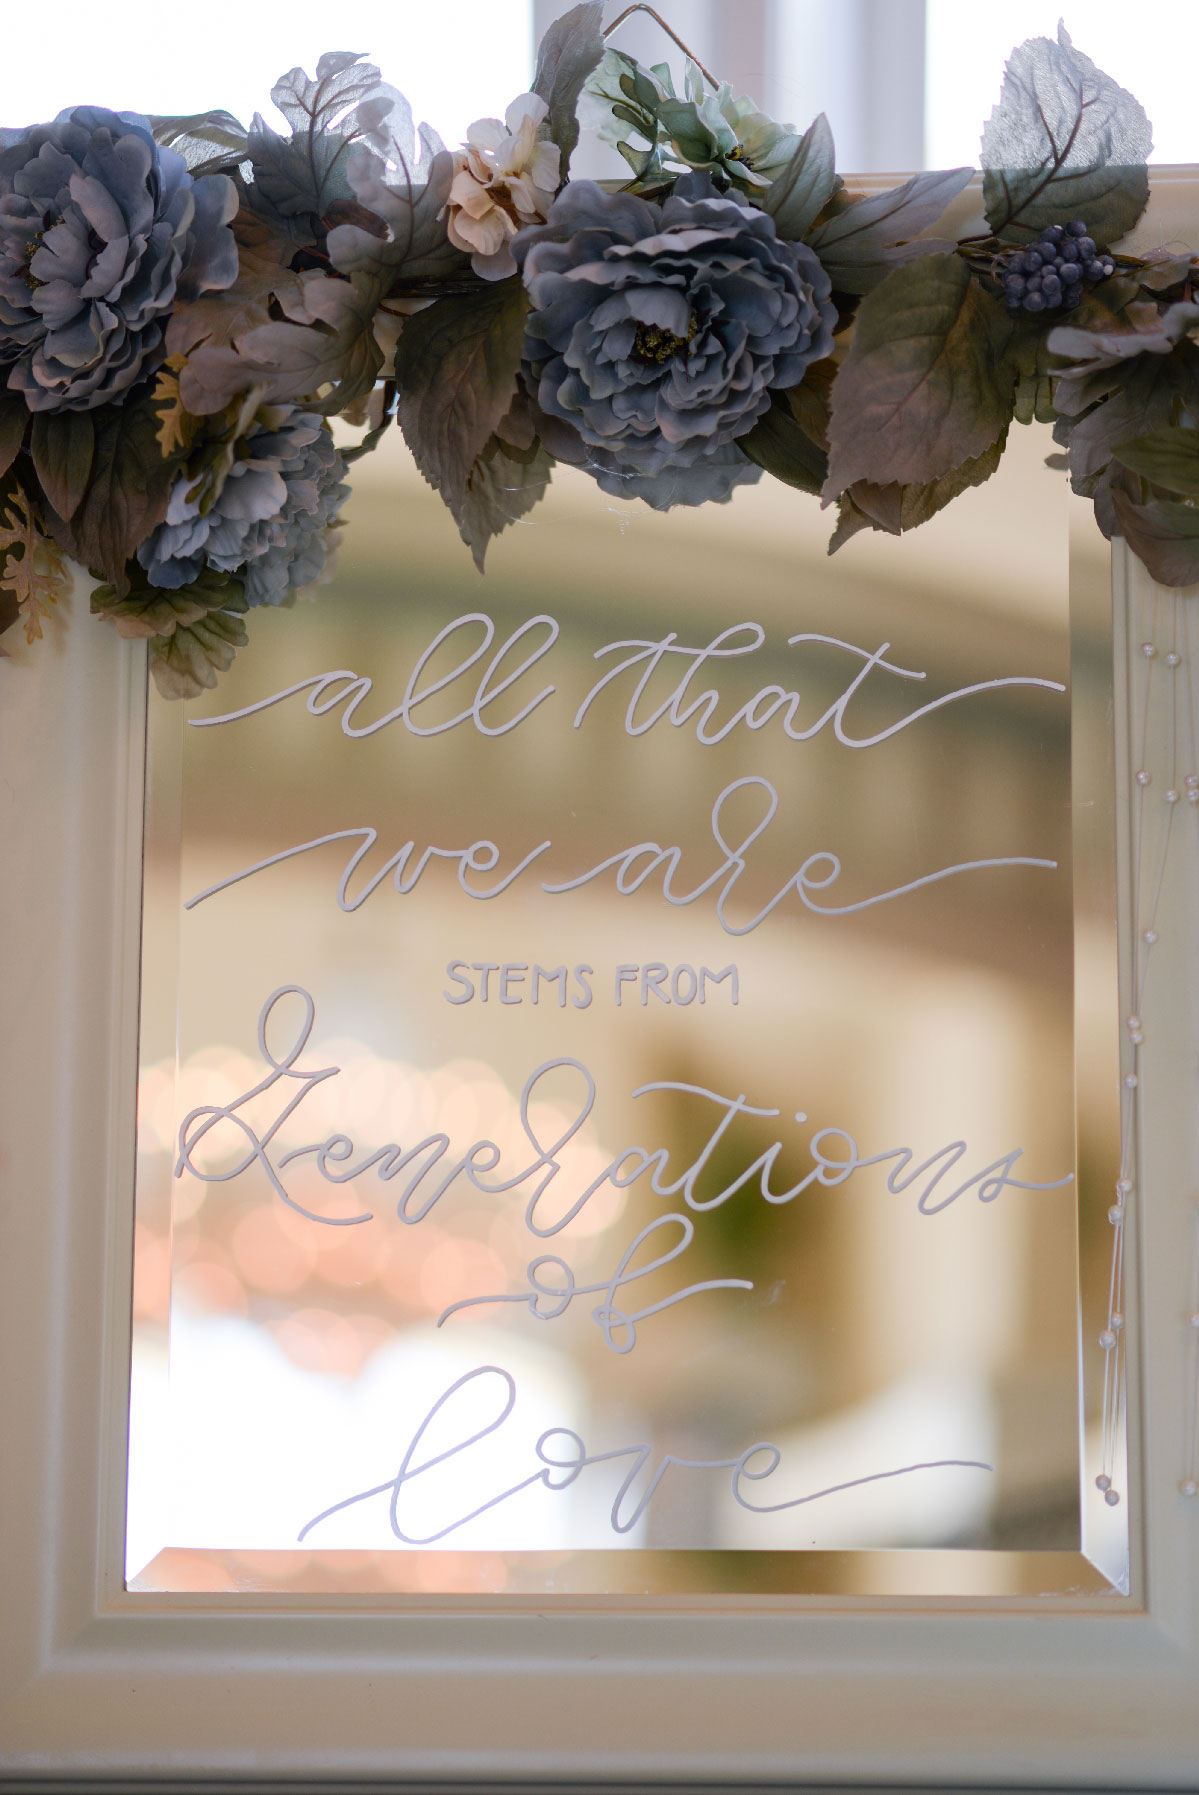 all that
we are
STEMS FROM
Generations
of
love